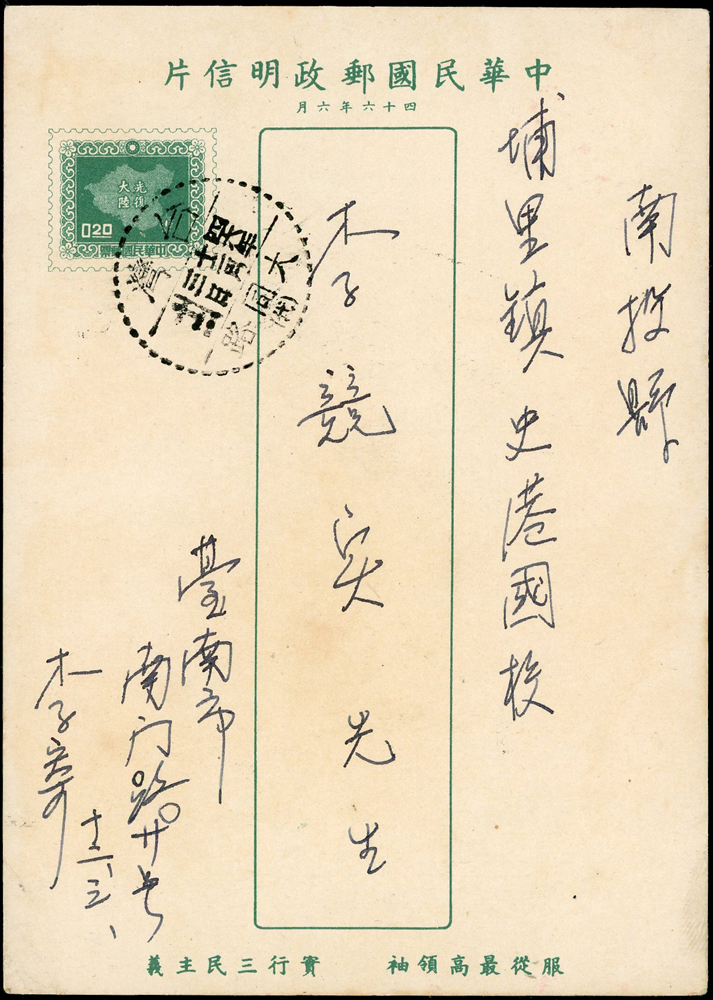 中華民國郵政明信片
四十六年六月
光復
大陸
0.20
中華民國郵票
台灣
四六年
十二月
三日
南投縣
埔里鎮史港國校
李競实先生
臺南市
南门路廿号
李寄
十二、三、
服從最高領袖 實行三民主義